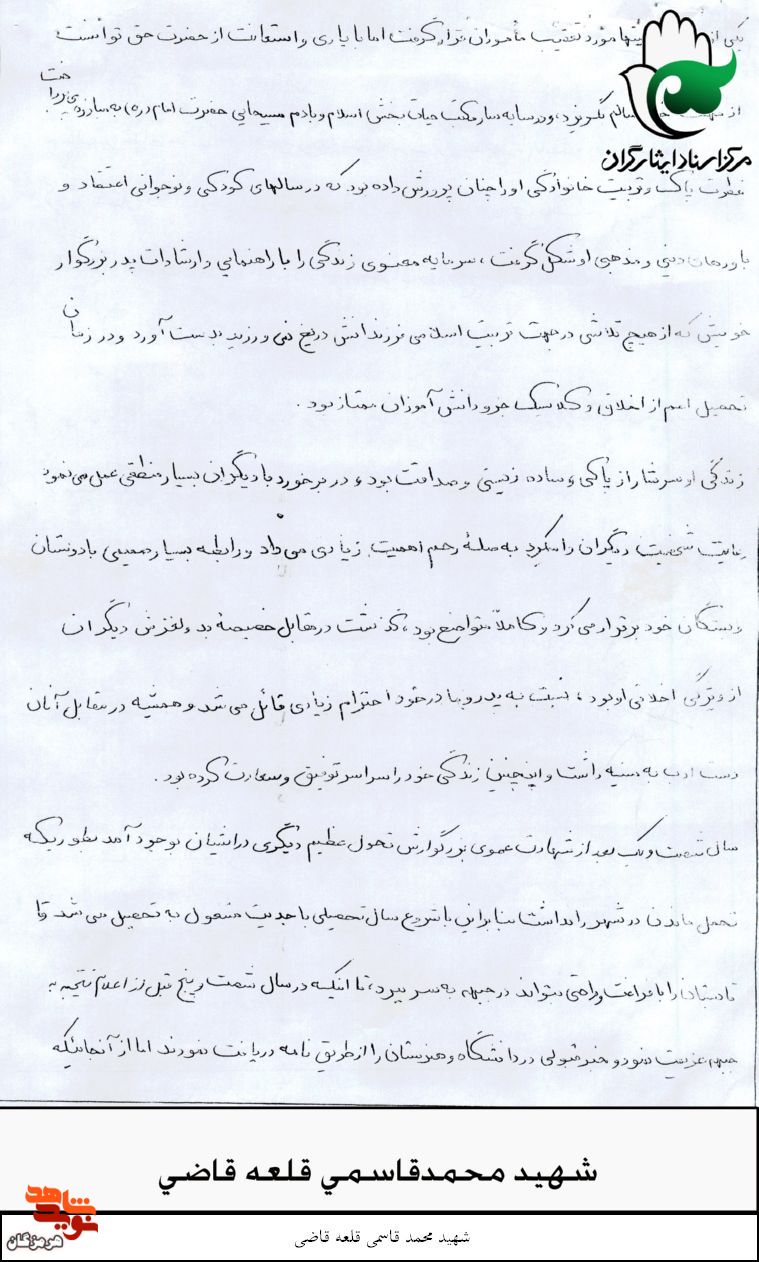 یکی از مورد تعقیب مأموران قرار گرفت اما با یاری و استعانت از حضرت حق توانست
از سالم بگریزد، و در سایه سار مکتب حیات بخش اسلام و با دم مسیحایی حضرت امام (ره) به مبارزه پرداخت
فطرت پاک و تربیت خانوادگی او را چنان پرورش داده بود که در سالهای کودکی و نوجوانی اعتقاد و
باورهای دینی و مذهبی او شکل گرفت، سرمایه معنوی زندگی را با راهنمایی و ارشادات پدر بزرگوار
خویش که از هیچ تلاشی در جهت تربیت اسلامی فرزندانش دریغ نمی ورزید بدست آورد و در زمان
تحصیل اعم از اخلاق و کلاسیک جزو دانش آموزان ممتاز بود.
زندگی او سرشار از پاکی و ساده زیستی و صداقت بود و در برخورد با دیگران بسیار منطقی عمل می نمود
رعایت شخصیت دیگران را میکرد به صلهٔ رحم اهمیت زیادی می داد و رابطه بسیار صمیمی با دوستان
و بستگان خود برقرار می کرد و کاملاً متواضع بود، گذشت در مقابل خصیصهٔ بد و لغزش دیگران
از ویژگی اخلاقی او بود، نسبت به پدر و مادر خود احترام زیادی قائل می شد و همیشه در مقابل آنان
دست ادب به سینه داشت و اینچنین زندگی خود را سراسر توفیق و سعادت کرده بود.
سال شصت و یک بعد از شهادت عموی بزرگوارش تحول عظیم دیگری در ایشان بوجود آمد بطوریکه
تحمل ماندن در شهر را نداشت بنابراین با شروع سال تحصیلی با جدیت مشغول به تحصیل می شد تا
تابستان را با فراغت و راحتی بتواند در جبهه به سر ببرد، تا اینکه در سال شصت و پنج قبل از اعلام نتیجه به
جبهه عزیمت نمود و خبر قبولی در دانشگاه و هنرستان را از طریق نامه دریافت نمودند اما از آنجائیکه
مرکز اسناد ایثارگران
شهید محمدقاسمي قلعه قاضي
نوید شاهد
هرمزگان
شهید محمد قاسمی قلعه قاضی